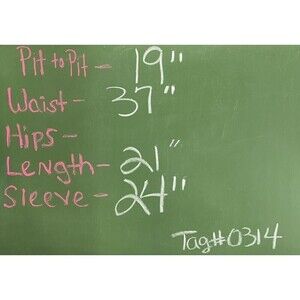 Pit to Pit - 19"
Waist - 37"
Hips -
Length - 21"
Sleeve - 24"
Tag#0314